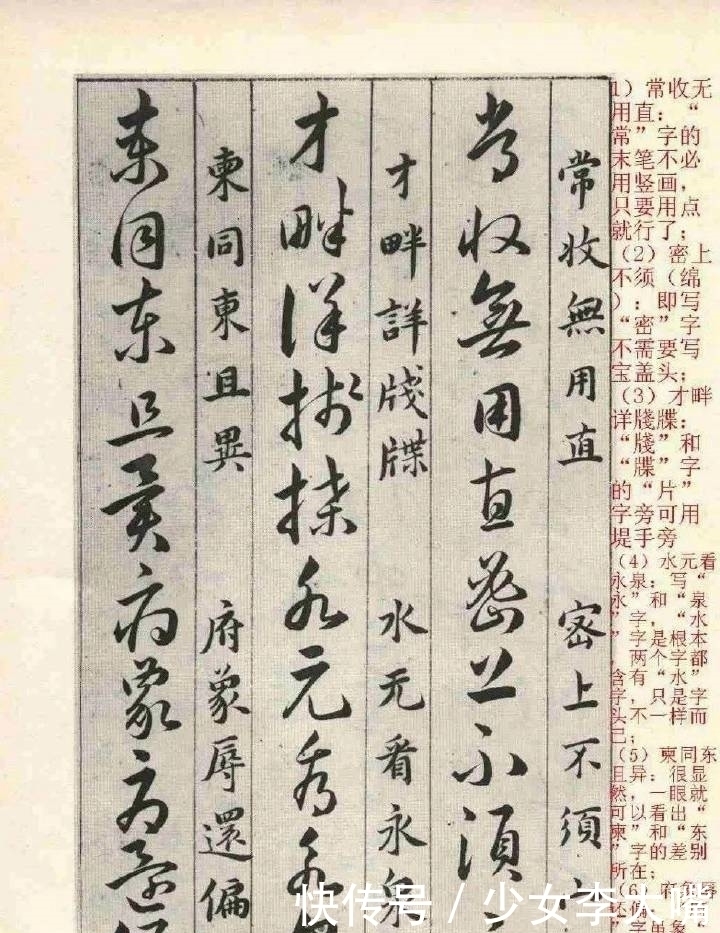 1）常收无
用直：“
常”字的
末笔不必
用竖画，
只要用点
就行了；
（2）密上
不须（绵
）：即写
“密”字
不需要写
宝盖头；
（3）才畔
详牋牒：
“牋”和
“牒”字
的“片”
字旁可用
提手旁
（4）水元看
永泉：写“
永”和“泉
”字，“水
”字是根本
，两个字都
含有“水”
字，只是字
头不一样而
已；
（5）柬同东
且异：很显
然，一眼就
可以看出“
柬”和“东
”字的差别
所在；
（6）府象辱
还偏
常收無用直 密上不須
常收無用直密上不須
才畔詳牋牒 水元看永泉
才畔詳牋牒水元看永
柬同東且異 府象辱還偏
柬同東且異府象辱還
快传号 / 少女李大嘴